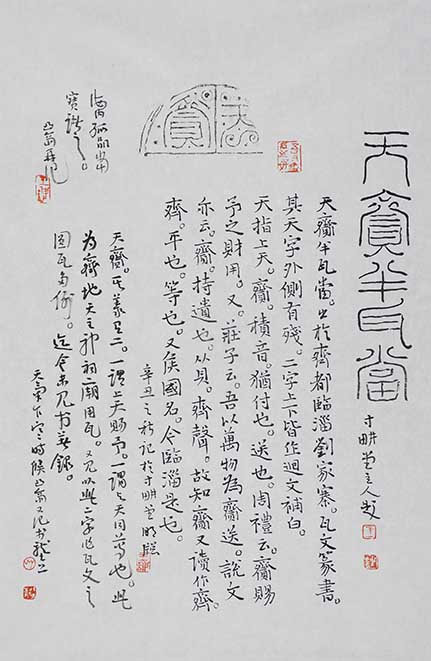 天齎半瓦當
寸畊堂主人跋
天齎半瓦當。出於齊都臨淄劉家寨。瓦文篆書。
其天字外側有殘。二字上下皆作迴文補白。
天指上天。齎。積音。猶付也。送也。周禮云。齎賜
予之財用。又。莊子云。吾以萬物為齎送。說文
亦云。齎。持遺也。从貝。齊聲。故知齎又讀作齊。
齊。平也。等也。又侯國名。今臨淄是也。
辛丑之秋記於寸畊堂明窗
天齎。其義有二。一謂上天賜予。一謂與天同等也。此
為齊地天主神祠廟用瓦。又見以此二字作瓦文之
圓瓦當。迄今未見
天齎
海內孤品當
寶藏之。
再記